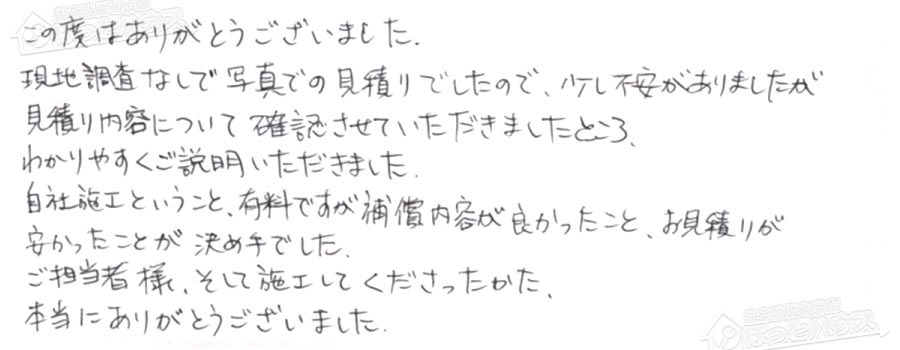 この度はありがとうございました.
現地調査なしで写真での見積りでしたので、少し不安がありましたが
見積り内容について確認させていただきましたところ、
わかりやすくご説明いただきました.
自社施工ということ、有料ですが補償内容が良かったこと、お見積りが
安かったことが決め手でした.
ご担当者様、そして施工してくださったかた、
本当にありがとうございました.